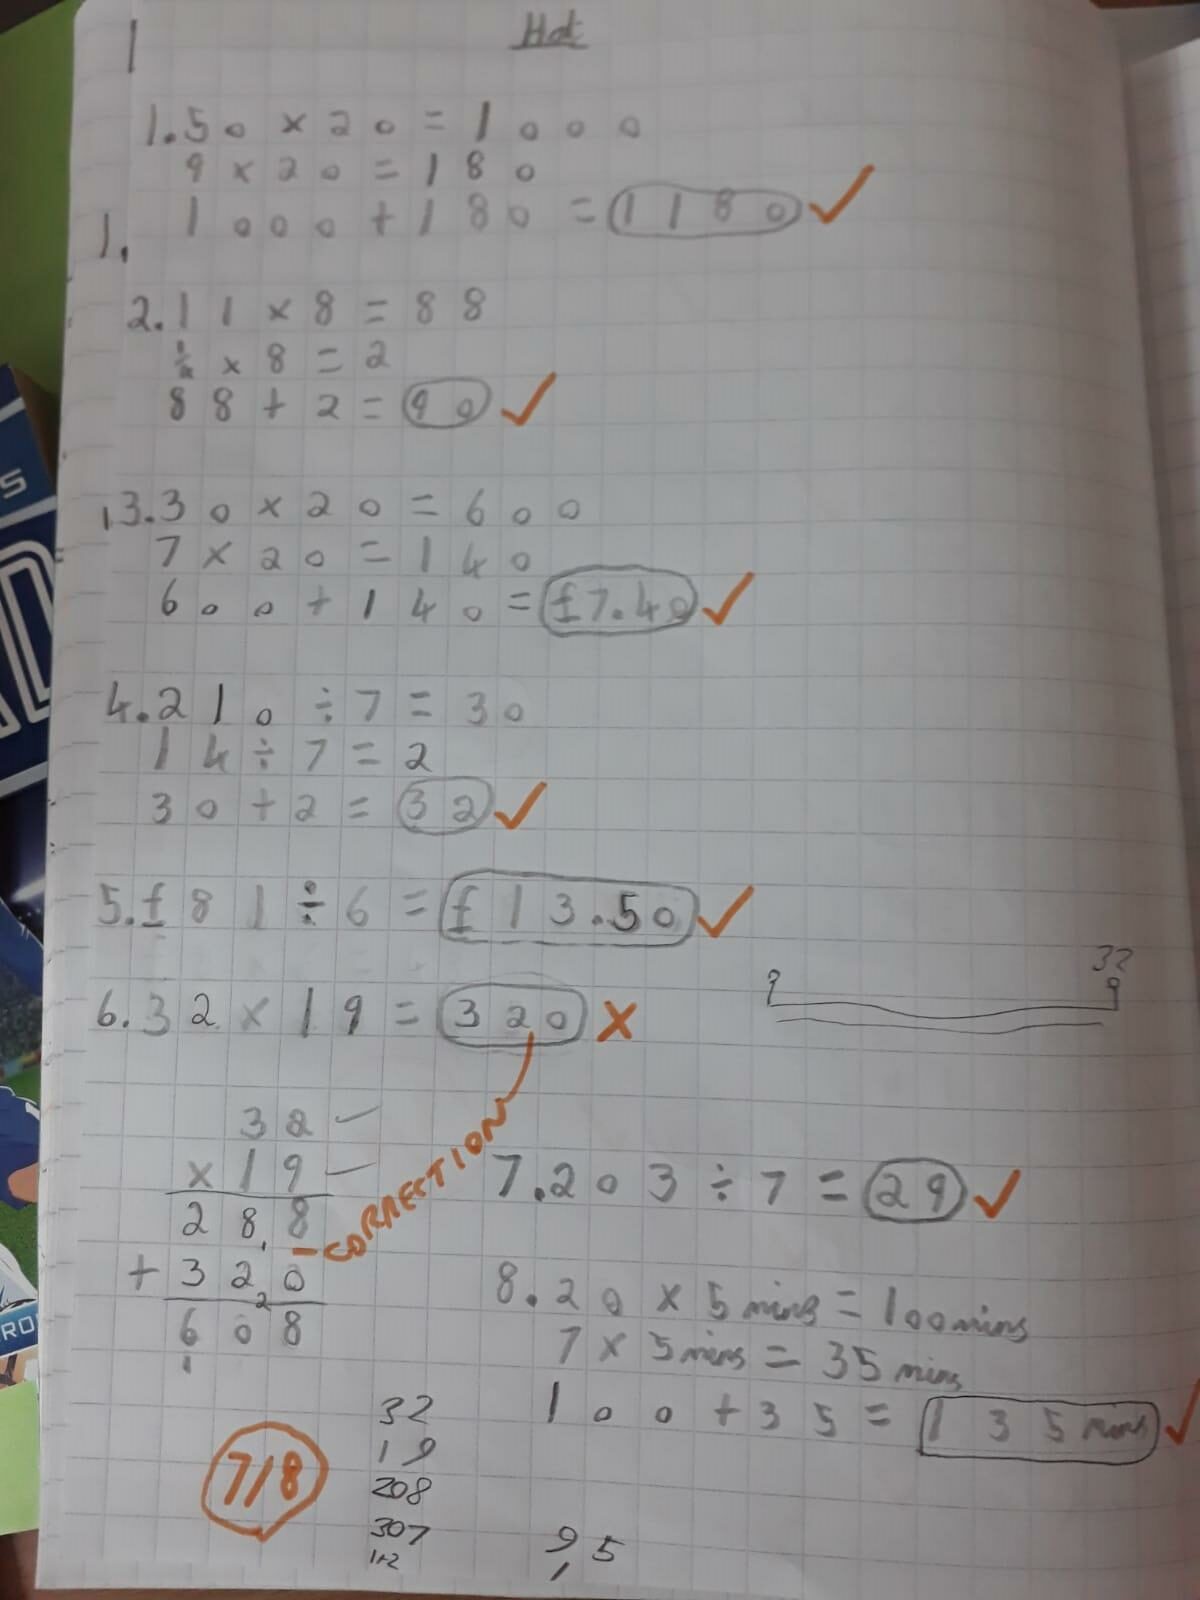 1
Hot
1. 50 × 20 = 1000
9 × 20 = 180
1000 + 180 = 1180 ✓
1.
2. 11 × 8 = 88
× 8 = 2
88 + 2 = 90 ✓
3. 30 × 20 = 600
7 × 20 = 140
600 + 140 = £7.40 ✓
4. 210 ÷ 7 = 30
14 ÷ 7 = 2
30 + 2 = 32 ✓
5. £81 ÷ 6 = £13.50 ✓
6. 32 × 19 = 320 ✗
32
32
× 19
288
+ 320
608
1
CORRECTION
7. 203 ÷ 7 = 29 ✓
8. 20 × 5 mins = 100 mins
7 × 5 mins = 35 mins
100 + 35 = 135 mins ✓
7/8
32
19
208
307
9,5
S
RO